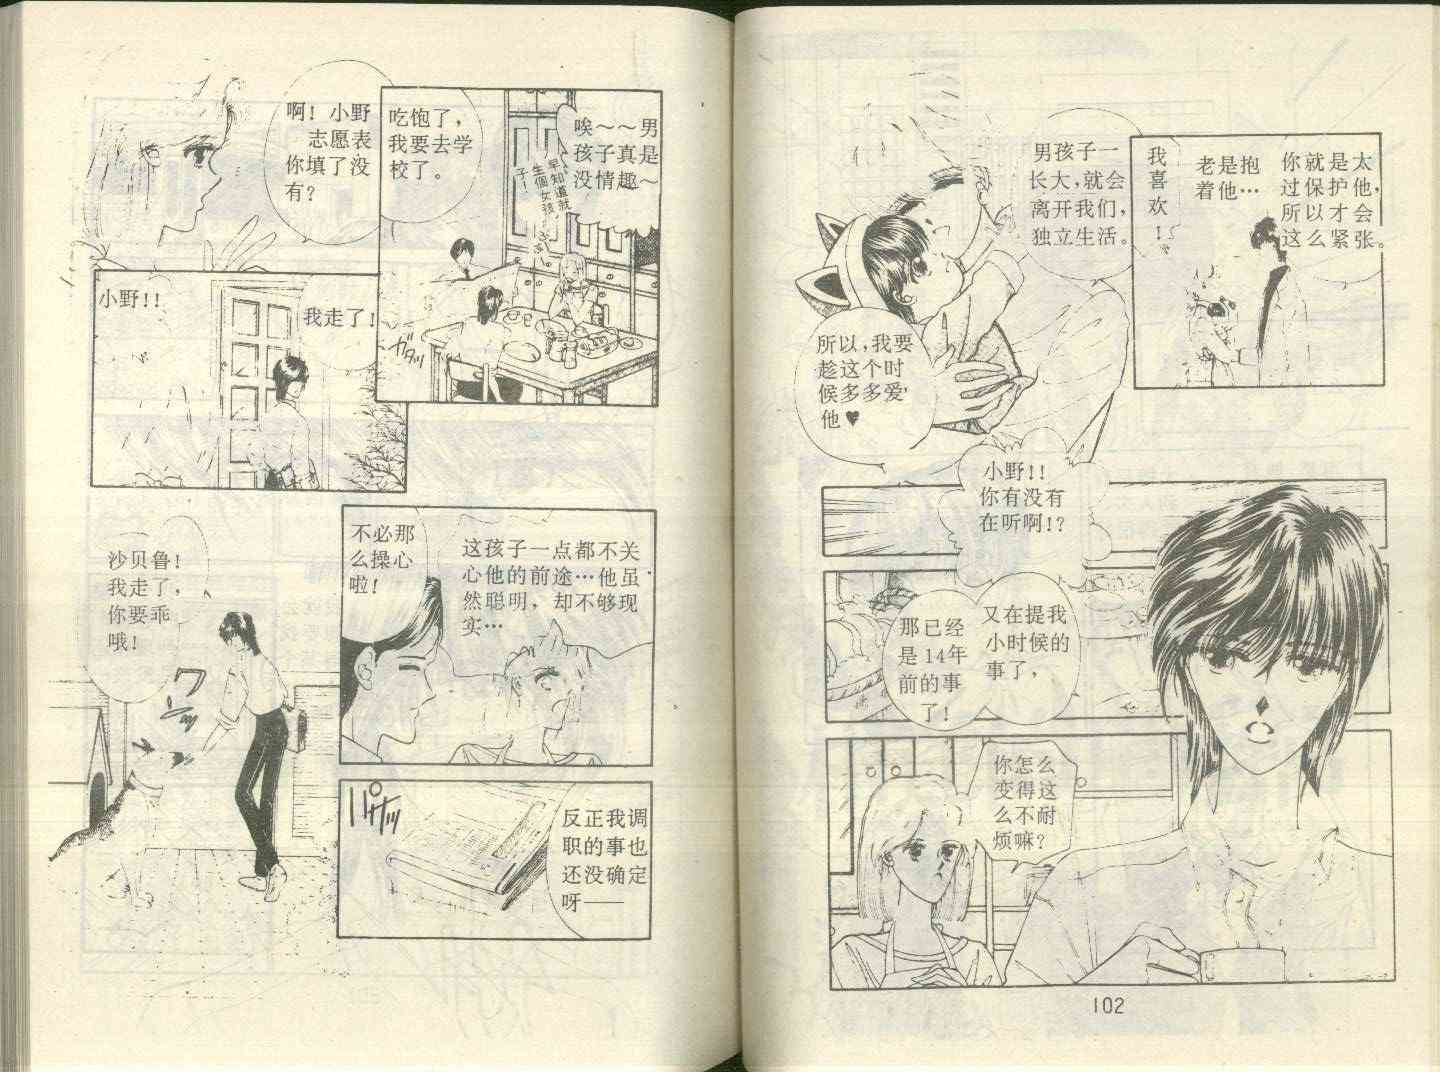 你就是太
过保护他,
所以才会
这么紧张。
老是抱
着他…
我喜欢!
男孩子一
长大,就会
离开我们,
独立生活。
所以,我要
趁这个时
候多多爱
他♥
小野!!
你有没有
在听啊!?
又在提我
小时候的
事了,
那已经
是14年
前的事
了!
你怎么
变得这
么不耐
烦嘛?
102
唉～～男
孩子真是
没情趣～
早知道就
生個女孩
子!
吃饱了,
我要去学
校了。
ガタッ
啊!小野
志愿表
你填了没
有?
我走了!
小野!!
这孩子一点都不关
心他的前途…他虽
然聪明,却不够现
实…
不必那
么操心
啦!
沙贝鲁!
我走了,
你要乖
哦!
ワン
バサッ
反正我调
职的事也
还没确定
呀——